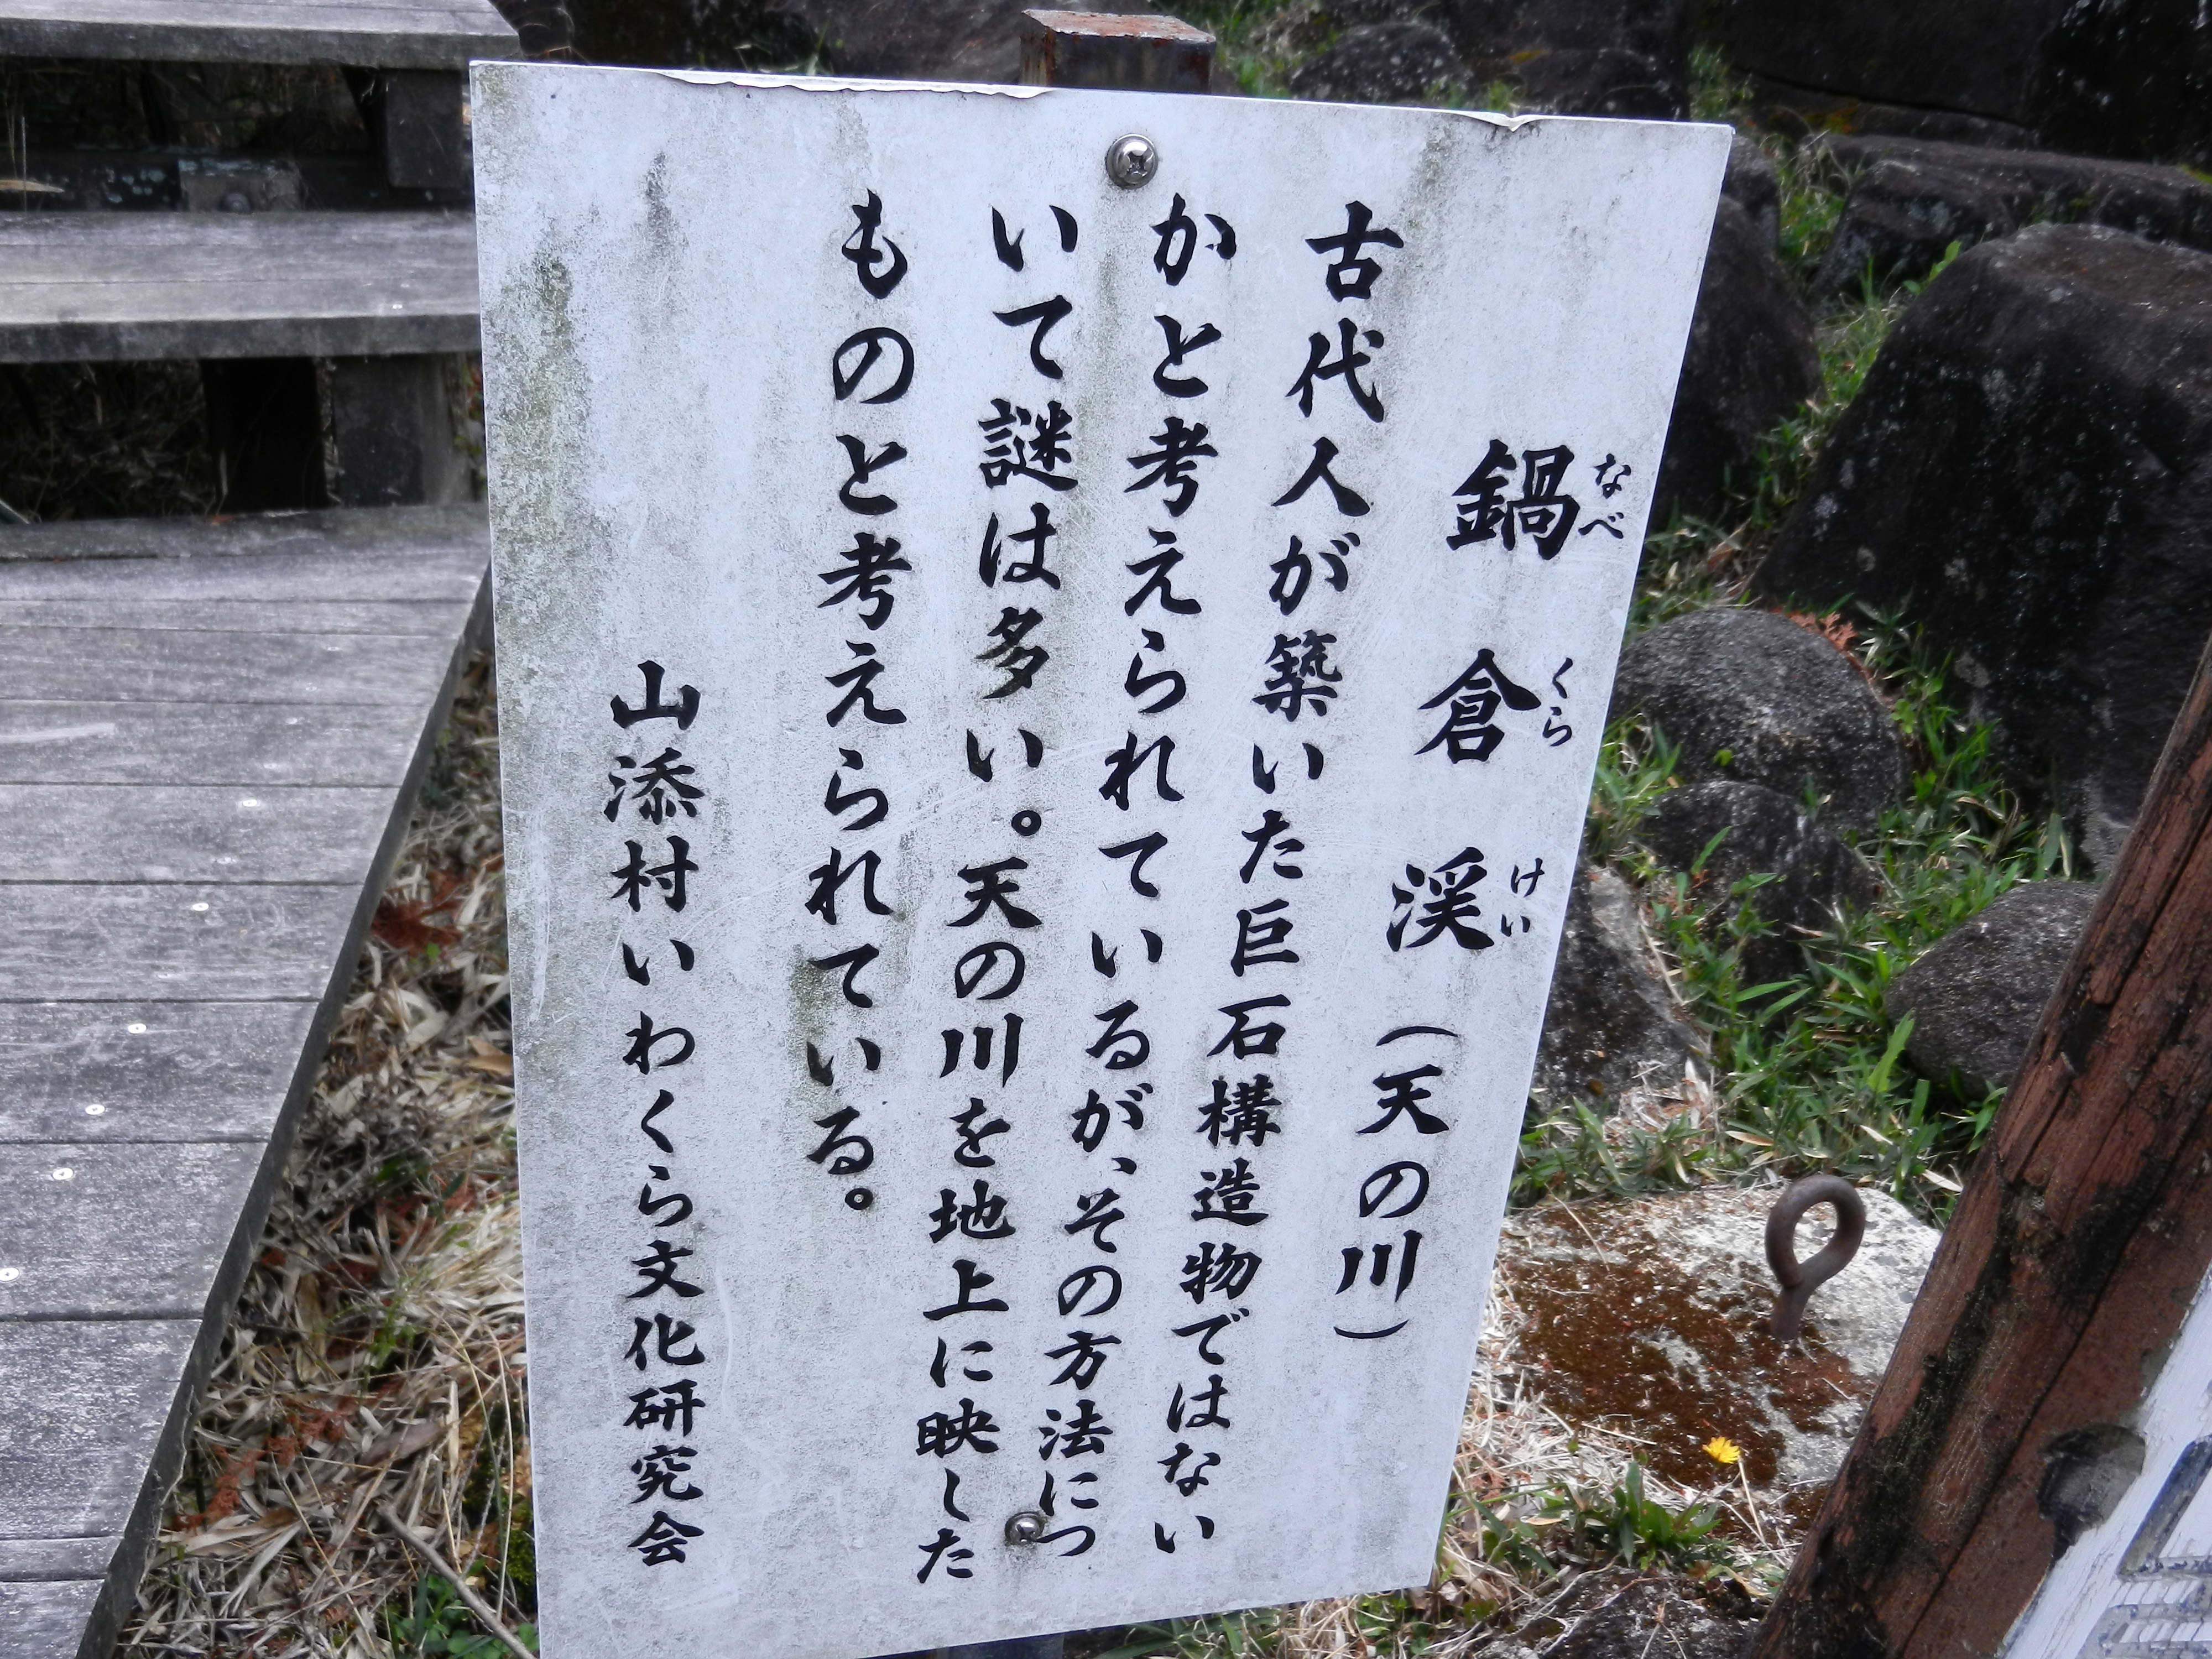 鍋倉渓（天の川）
なべくらけい
古代人が築いた巨石構造物ではない
かと考えられているが、その方法につ
いて謎は多い。天の川を地上に映した
ものと考えられている。
山添村いわくら文化研究会